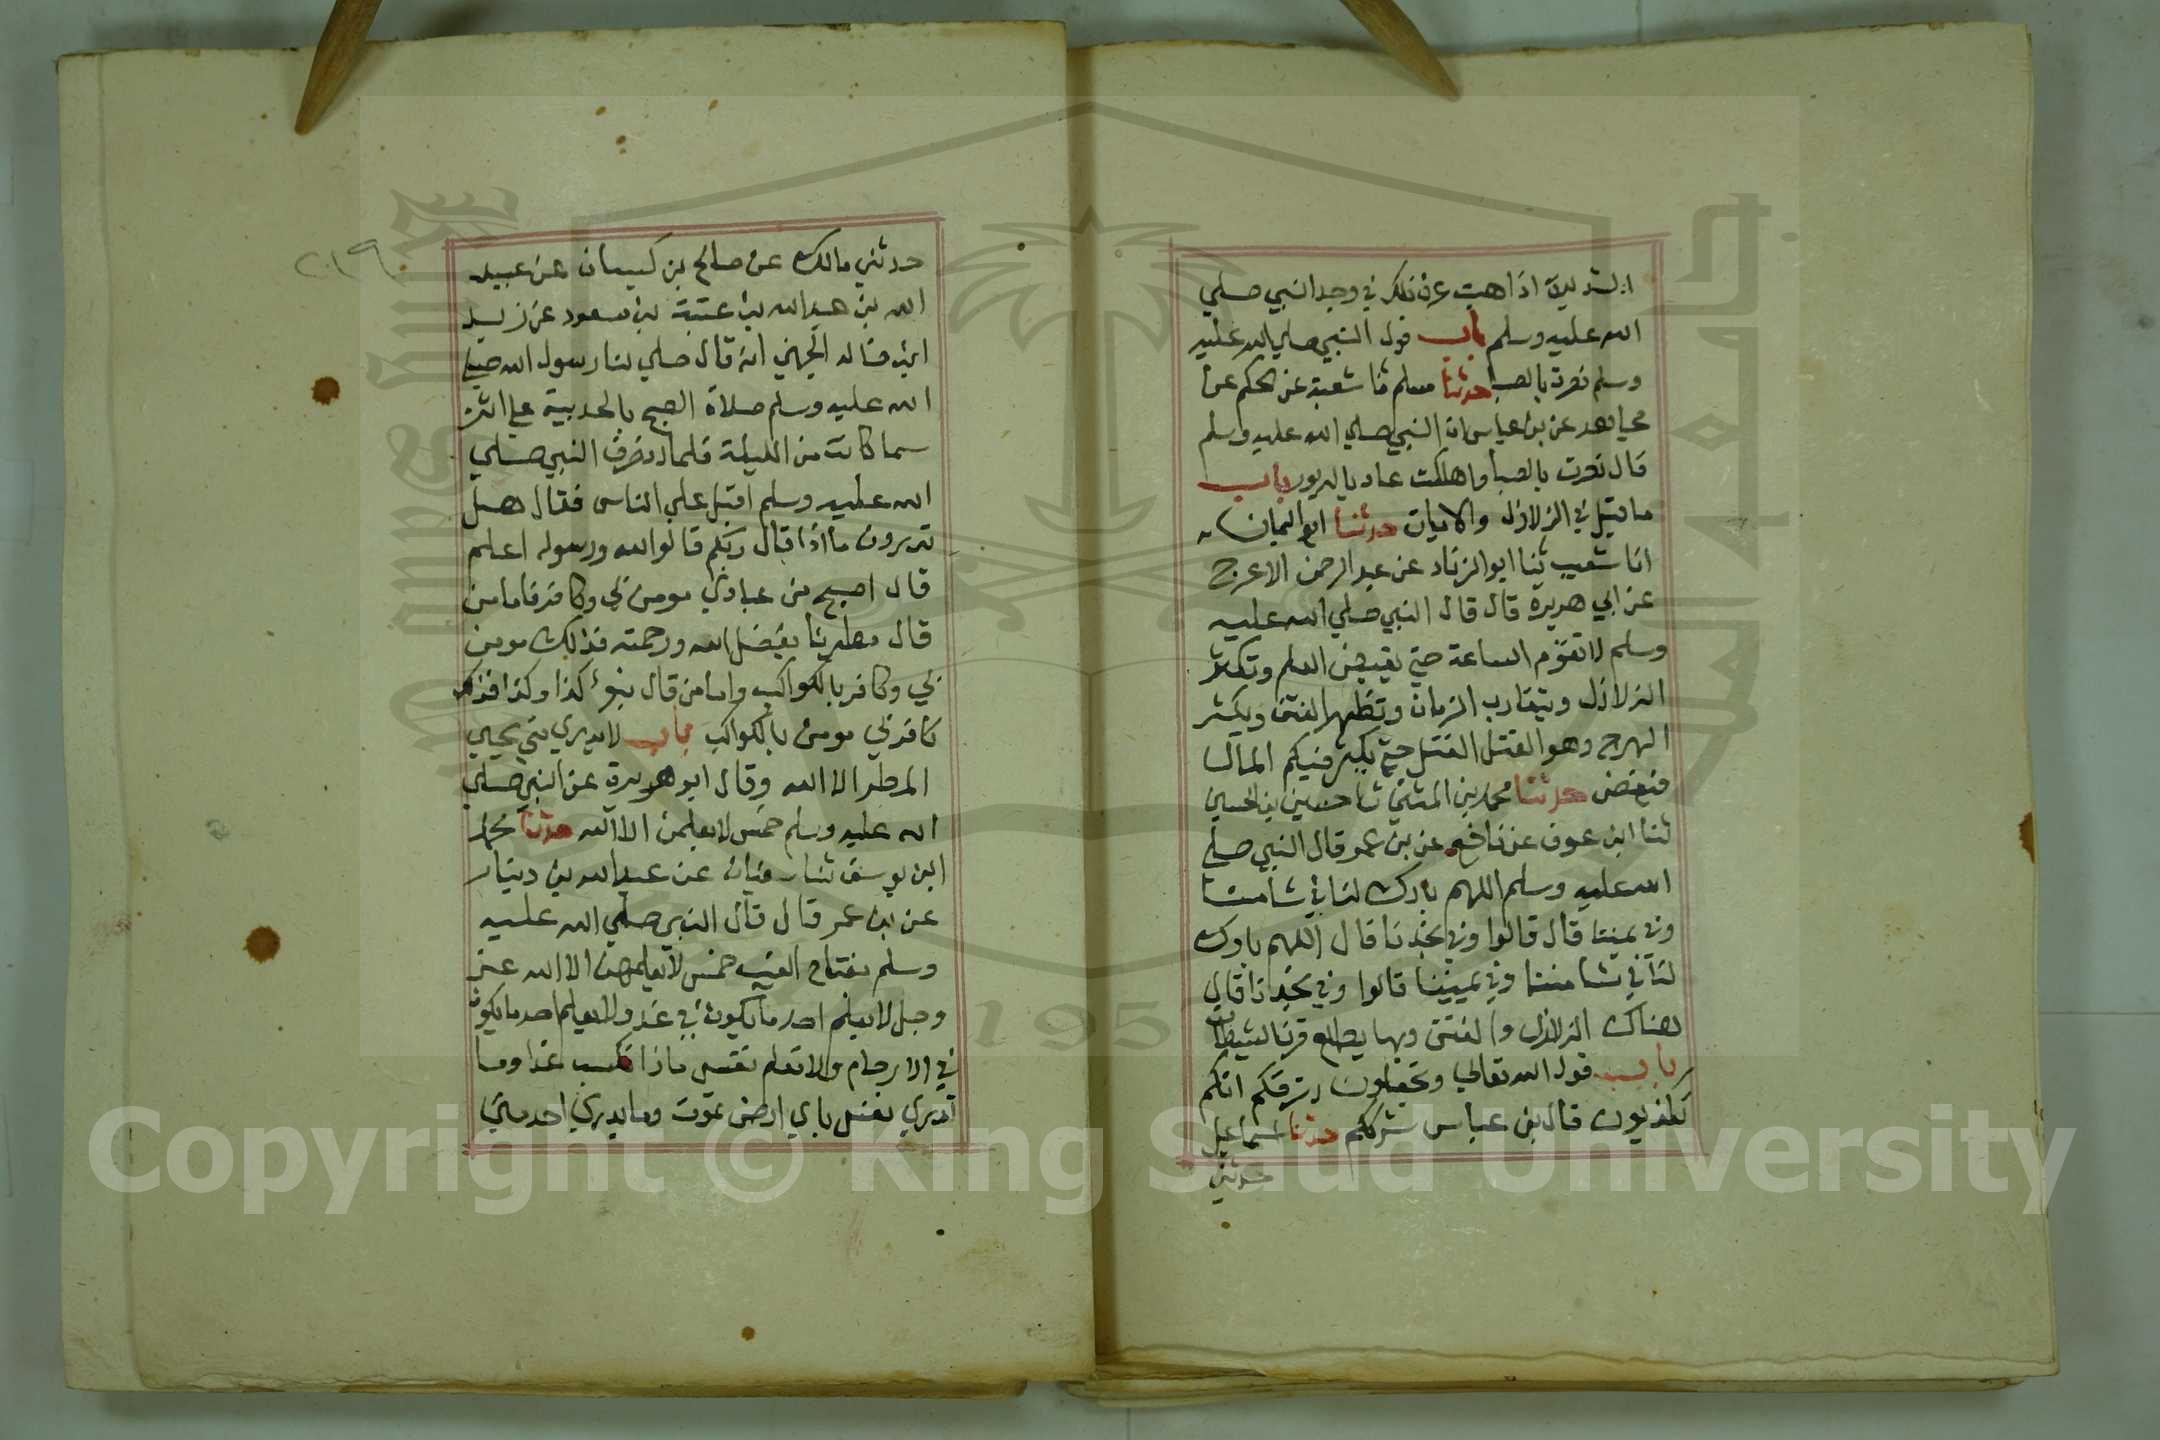 الشديدة اذا هبت عرف ذلك في وجه النبي صلي
الله عليه وسلم باب قول النبي صلي الله عليه
وسلم نصرت بالصبا حدثنا مسلم ثنا شعبة عن الحكم عن
مجاهد عن بن عباس ان النبي صلي الله عليه وسلم
قال نصرت بالصبا واهلكت عاد بالدبور باب
ما قيل في الزلازل والايات حدثنا ابو اليمان
انا شعيب ثنا ابو الزناد عن عبد الرحمن الاعرج
عن ابي هريرة قال قال النبي صلي الله عليه
وسلم لا تقوم الساعة حتي يقبض العلم وتكثر
الزلازل ويتقارب الزمان وتظهر الفتن ويكثر
الهرج وهو القتل القتل حتي يكثر فيكم المال
فيفيض حدثنا محمد بن المثني ثنا حسين بن الحسن
ثنا ابن عوف عن نافع عن بن عمر قال النبي صلي
الله عليه وسلم اللهم بارك لنا في شامنا
وفي يمننا قال قالوا وفي نجدنا قال اللهم بارك
لنا في شامننا وفي يميننا قالوا وفي نجدنا قال
هناك الزلازل والفتن وبها يطلع قرن الشيطان
باب قول الله تعالي وتجعلون رزقكم انكم
تكذبون قال بن عباس شرككم حدثنا اسماعيل
حدثني
٢١٩
حدثني مالك عن صالح بن كيسان عن عبيد
الله بن عبد الله بن عتبة بن مسعود عن زيد
ابن خالد الجهني انه قال صلي لنا رسول الله صلي
الله عليه وسلم صلاة الصبح بالحديبية علي اثر
سما كانت من الليلة فلما انصرف النبي صلي
الله عليه وسلم اقبل علي الناس فقال هل
تدرون ماذا قال ربكم قالوا الله ورسوله اعلم
قال اصبح من عبادي مومن بي وكافر فاما من
قال مطرنا بفضل الله ورحمته فذلك مومن
بي وكافر بالكواكب واما من قال بنوء كذا وكذا فذلك
كافر بي مومن بالكواكب باب لا يدري متي يجي
المطر الا الله وقال ابو هريرة عن النبي صلي
الله عليه وسلم خمس لا يعلمهن الا الله حدثنا محمد
ابن يوسف ثنا سفيان عن عبد الله بن دينار
عن بن عمر قال قال النبي صلي الله عليه
وسلم مفتاح الغيب خمس لا يعلمهن الا الله عز
وجل لا يعلم احد ما يكون في غد ولا يعلم احد ما يكون
في الارحام ولا تعلم نفس ماذا تكسب غدا وما
تدري نفس باي ارض تموت وما يدري احد متي
Copyright © King Saud University
195